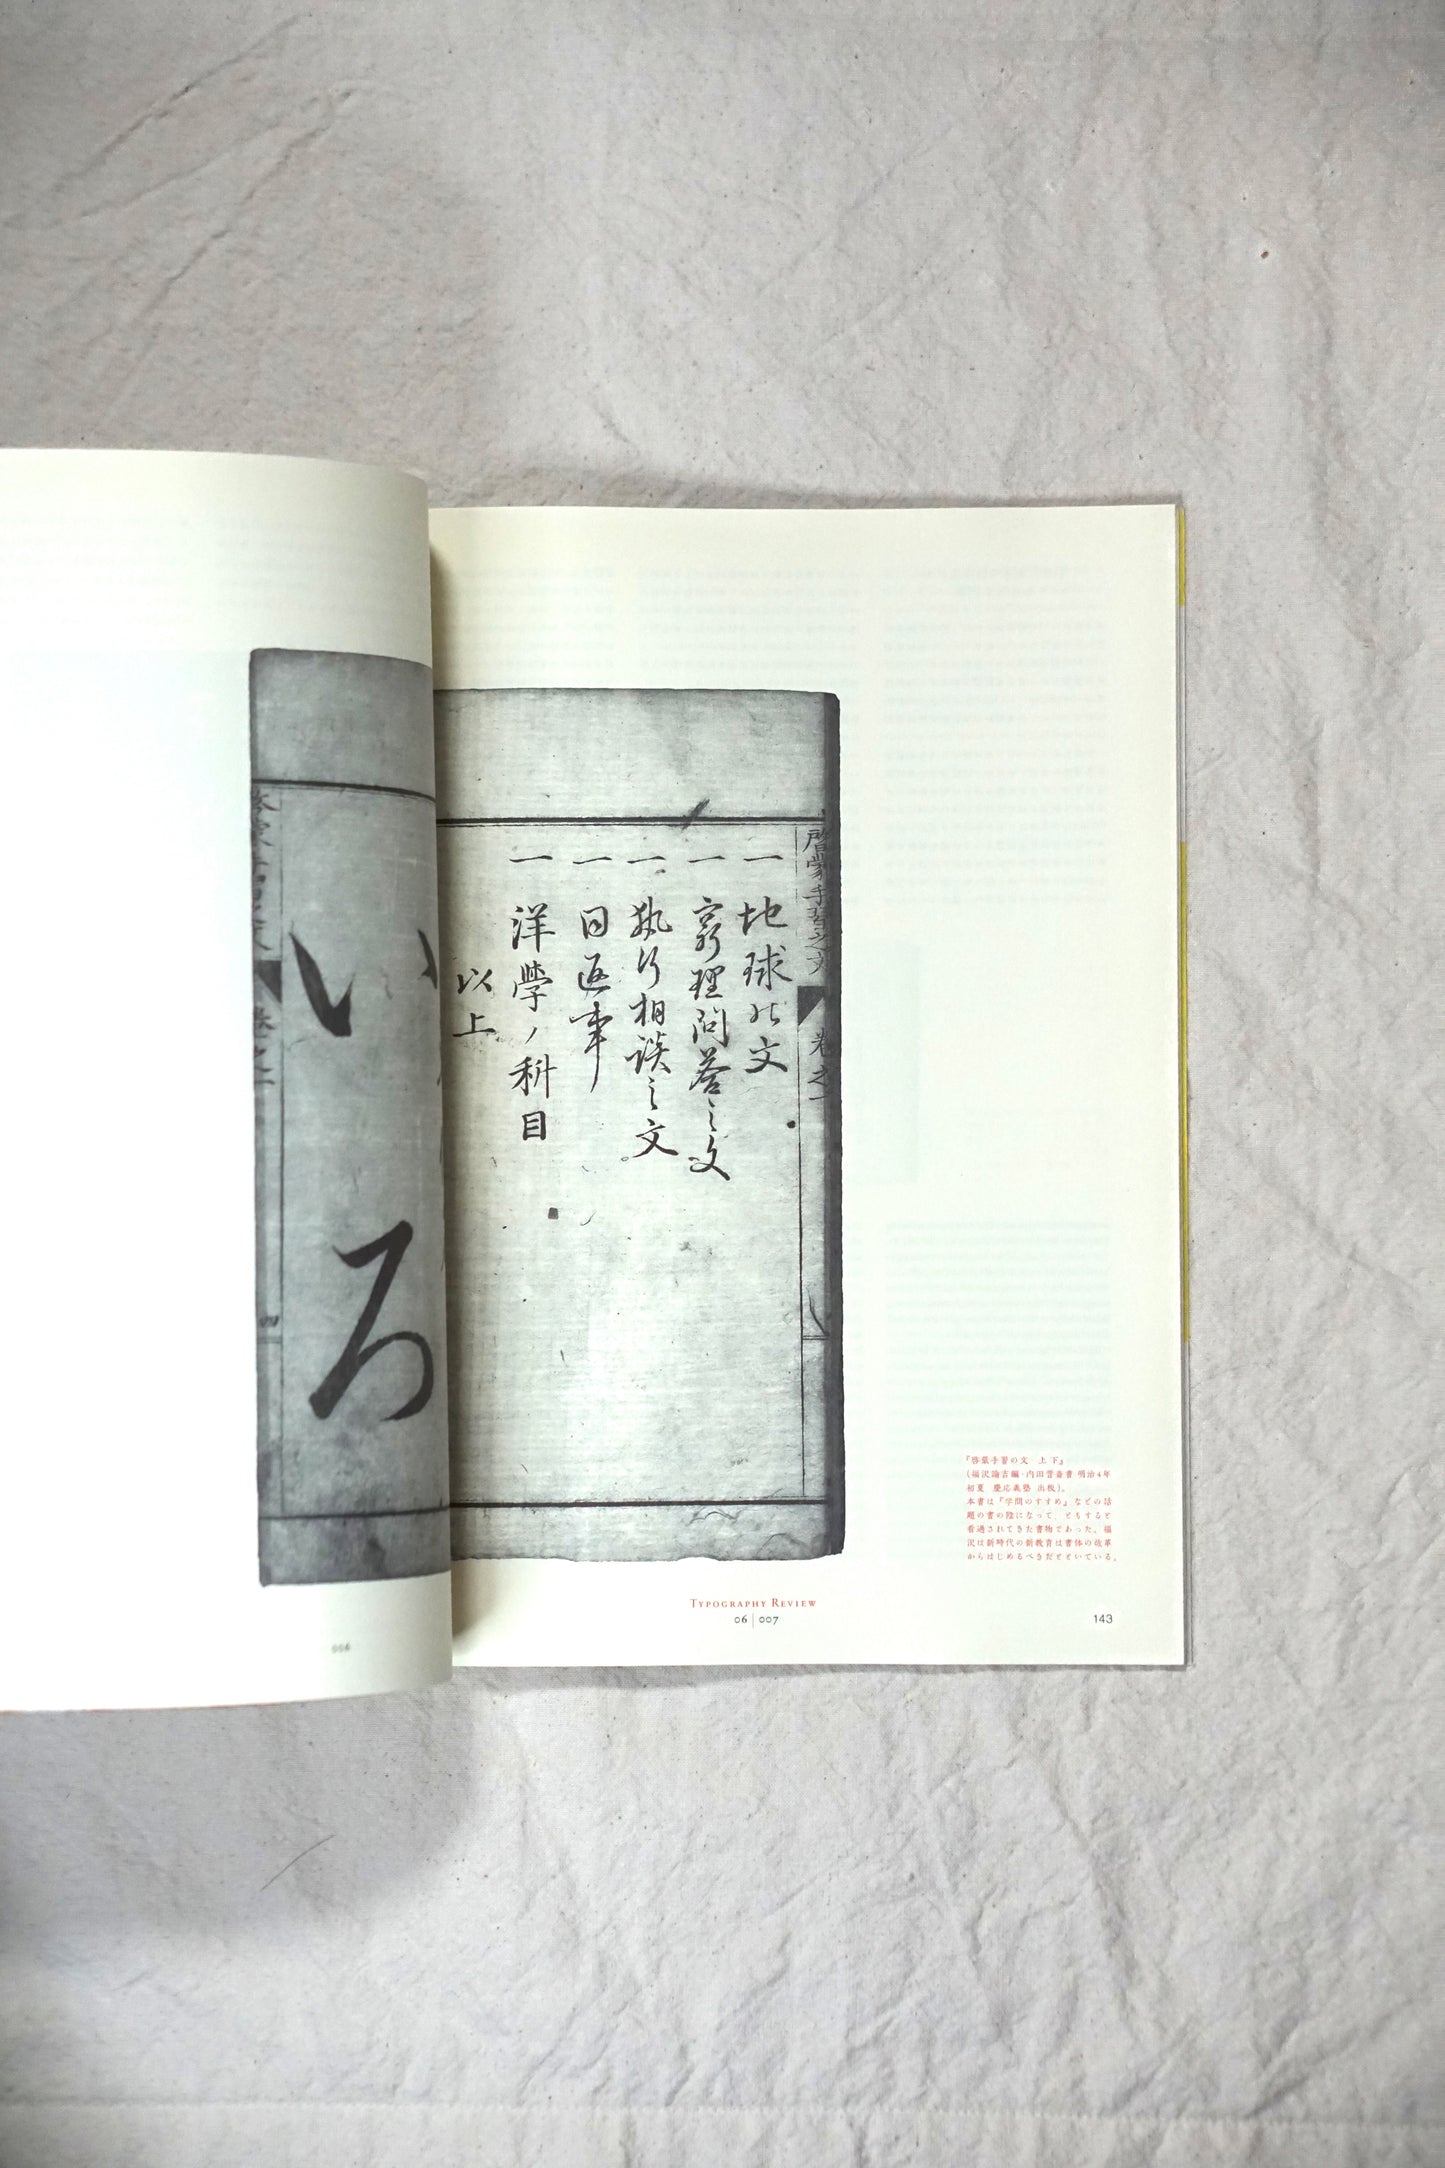 啓蒙手習之文
巻之一
一 地球の文
一 窮理問答之文
一 執行相談之文
一 同返事
一 洋學ノ科目
以上
い
ろ
『啓蒙手習の文 上下』
(福沢諭吉編・内田晋斎書 明治4年
初夏 慶応義塾 出板)。
本書は『学問のすすめ』などの話
題の書の陰になって、ともすると
看過されてきた書物であった。福
沢は新時代の新教育は書体の改革
からはじめるべきだといている。
TYPOGRAPHY REVIEW
06 | 007
143
006